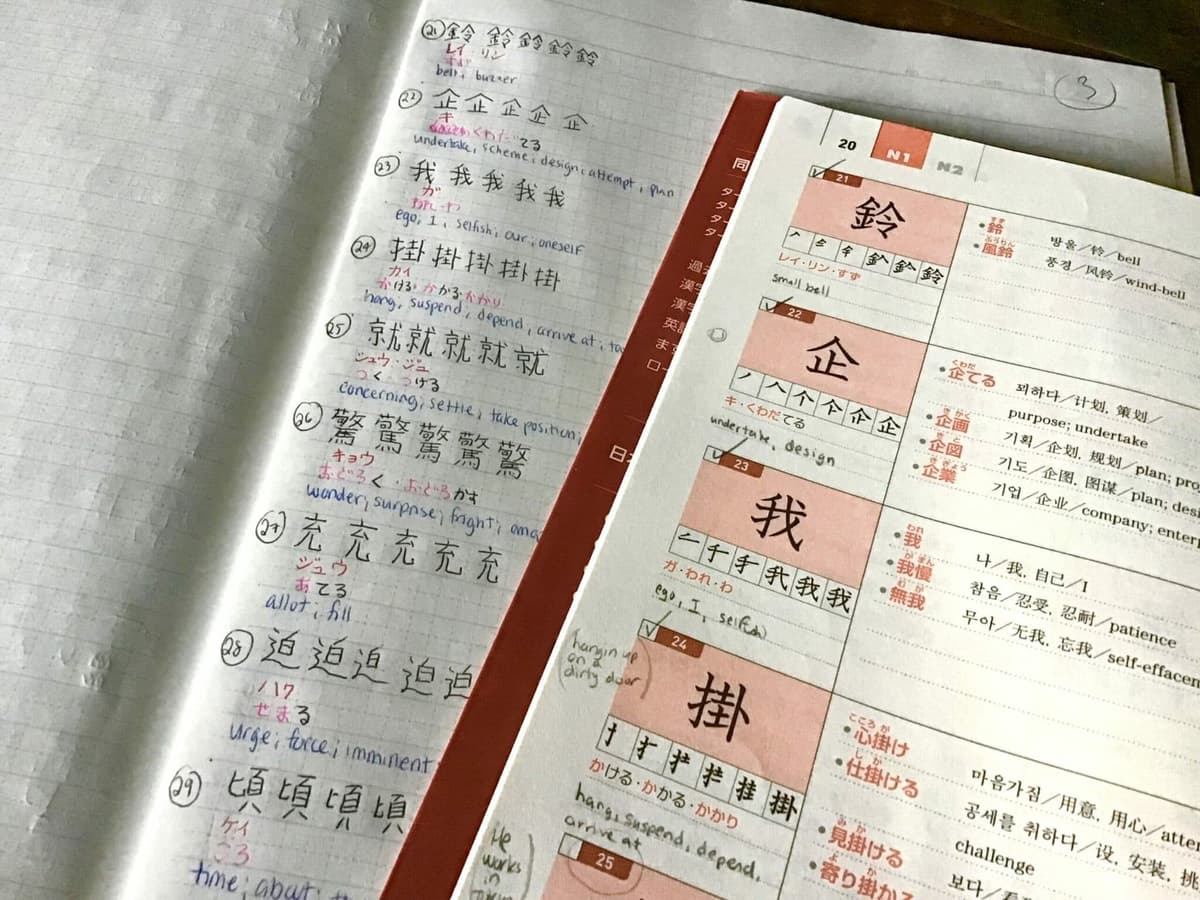 3
㉑鈴 鈴 鈴 鈴 鈴
レイ リン
すず
bell, buzzer
㉒ 企 企 企 企 企
キ
くわだてる
undertake, scheme, design, attempt, plan
㉓ 我 我 我 我 我
ガ
われ・わ
ego, I, selfish, our, oneself
㉔ 掛 掛 掛 掛 掛
カイ
かける・かかる・かかり
hang, suspend, depend, arrive at,
㉕ 就 就 就 就 就
ジュウ・ジュ
つく・つける
concerning, settle, take position,
㉖ 驚 驚 驚 驚 驚
キョウ
おどろく・おどろかす
wonder; surprise; fright;
㉗ 充 充 充 充 充
ジュウ
あてる
allot; fill
㉘ 迫 迫 迫 迫 迫
ハク
せまる
urge; force; imminent
㉙ 頃 頃 頃 頃
ケイ
ころ
time; about;
20 N1 N2
21
鈴
レイ・リン・すず
small bell
すず
•鈴 방울/铃/bell
ふうりん
•風鈴 풍경/风铃/wind-bell
22
企
キ・くわだてる
undertake, design
くわだ
•企てる 꾀하다/计划, 策划/
purpose; undertake
きかく
•企画 기획/企划, 规划/plan;
きと
•企図 기도/企图, 图谋/plan;
きぎょう
•企業 기업/企业/company;
23
我
ガ・われ・わ
ego, I, selfish
われ
•我 나/我, 自己/I
がまん
•我慢 참음/忍受, 忍耐/patience
むが
•無我 무아/无我, 忘我/
24
掛
かける・かかる・かかり
hang, suspend, depend,
arrive at
(hangin up
on a
dirty door)
こころが
•心掛け 마음가짐/用意, 用心/
しか
•仕掛ける 공세를 취하다/设, 安装,
challenge
みか
•見掛ける 보다/
よ か
•寄り掛かる
25
He
works
in